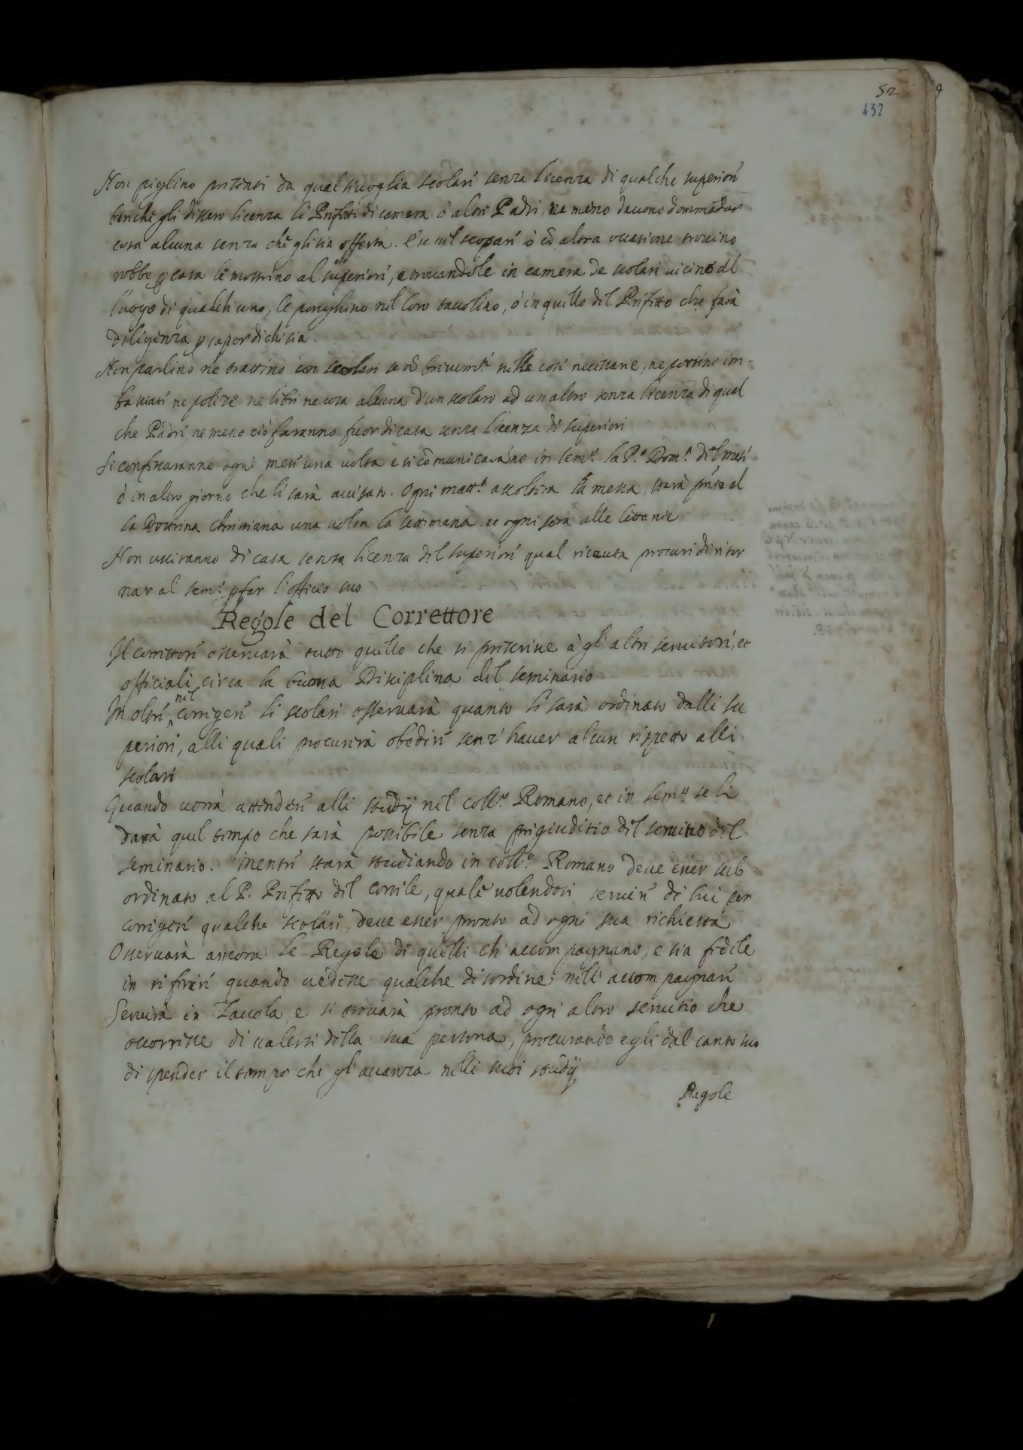 52
432
Non piglino presenti da qual sivoglia scolari senza licenza di qualche superiori
benche gli dessero licenza li Prefetti di camera ò altri Padri, ne meno devono dommādar
cosa alcuna senza chē gli sia offerta. E se nel scopari ò cō altra occasione trovino
robbe p casa le mostrino al superiori, e trovandole in camera de scolari vicino al
luogo di qualch'uno, le ponghino nel loro tavolino, ò in quello del Prefetto che farà
diligenza p saper di chi sia.
Non parlino ne trattino con scolari se nō brevemte nelle cose necessarie, ne portino im=
basciate ne polize ne libri ne cosa alcuna d'un scolaro ad un altro senza licenza di qual
che Padri ne meno ciò faranno fuor di casa senza licenza di superiori
Si confessaranno ogni mese una volta e si cōmunicaranno in semo la Pa Doma del mese
ò in altro giorno che li sarà avisato. Ogni matta ascoltira la messa, starà pnte al
la Dottrina christiana una volta la settimana, et ogni sera alle lettanie
Non usciranno di casa senza licenza del superiori qual ricevuta procuri di ritor
nar al semo p far l'officio suo
Regole del Correttore
Il correttori osservarà tutto quello che si prescrive à gl'altri servitori, et
officiali circa la buona Disciplina del seminario
In oltri nel corrigeri li scolari osservarà quanto li sarà ordinato dalli su
periori, alli quali procurirà obediri senz'haver alcun rispetto alli
scolari
Quando vorrà attenderi alli studÿ nel collo Romano, et in semo se li
darà quel tempo che sarà possibile senza pregiuditio del servitio del
seminario. Mentri starà studiando in collo Romano deve esser sub
ordinato al P. Prefetto del cortile, quale volendosi serviri di lui per
corrigeri qualche scolari, deve esser pronto ad ogni sua richiesta
Osservarà ancora le Regole di quelli ch'accompagnano, e sia fedele
in riferiri quando vedesse qualche disordine nell'accompagnari
Servirà in Tavola e si trovarà pronto ad ogn'altro servitio che
occorresse di valersi della sua persona, procurando egli dal canto suo
di spender il tempo che gl'avanza nelli suoi studÿ
Regole